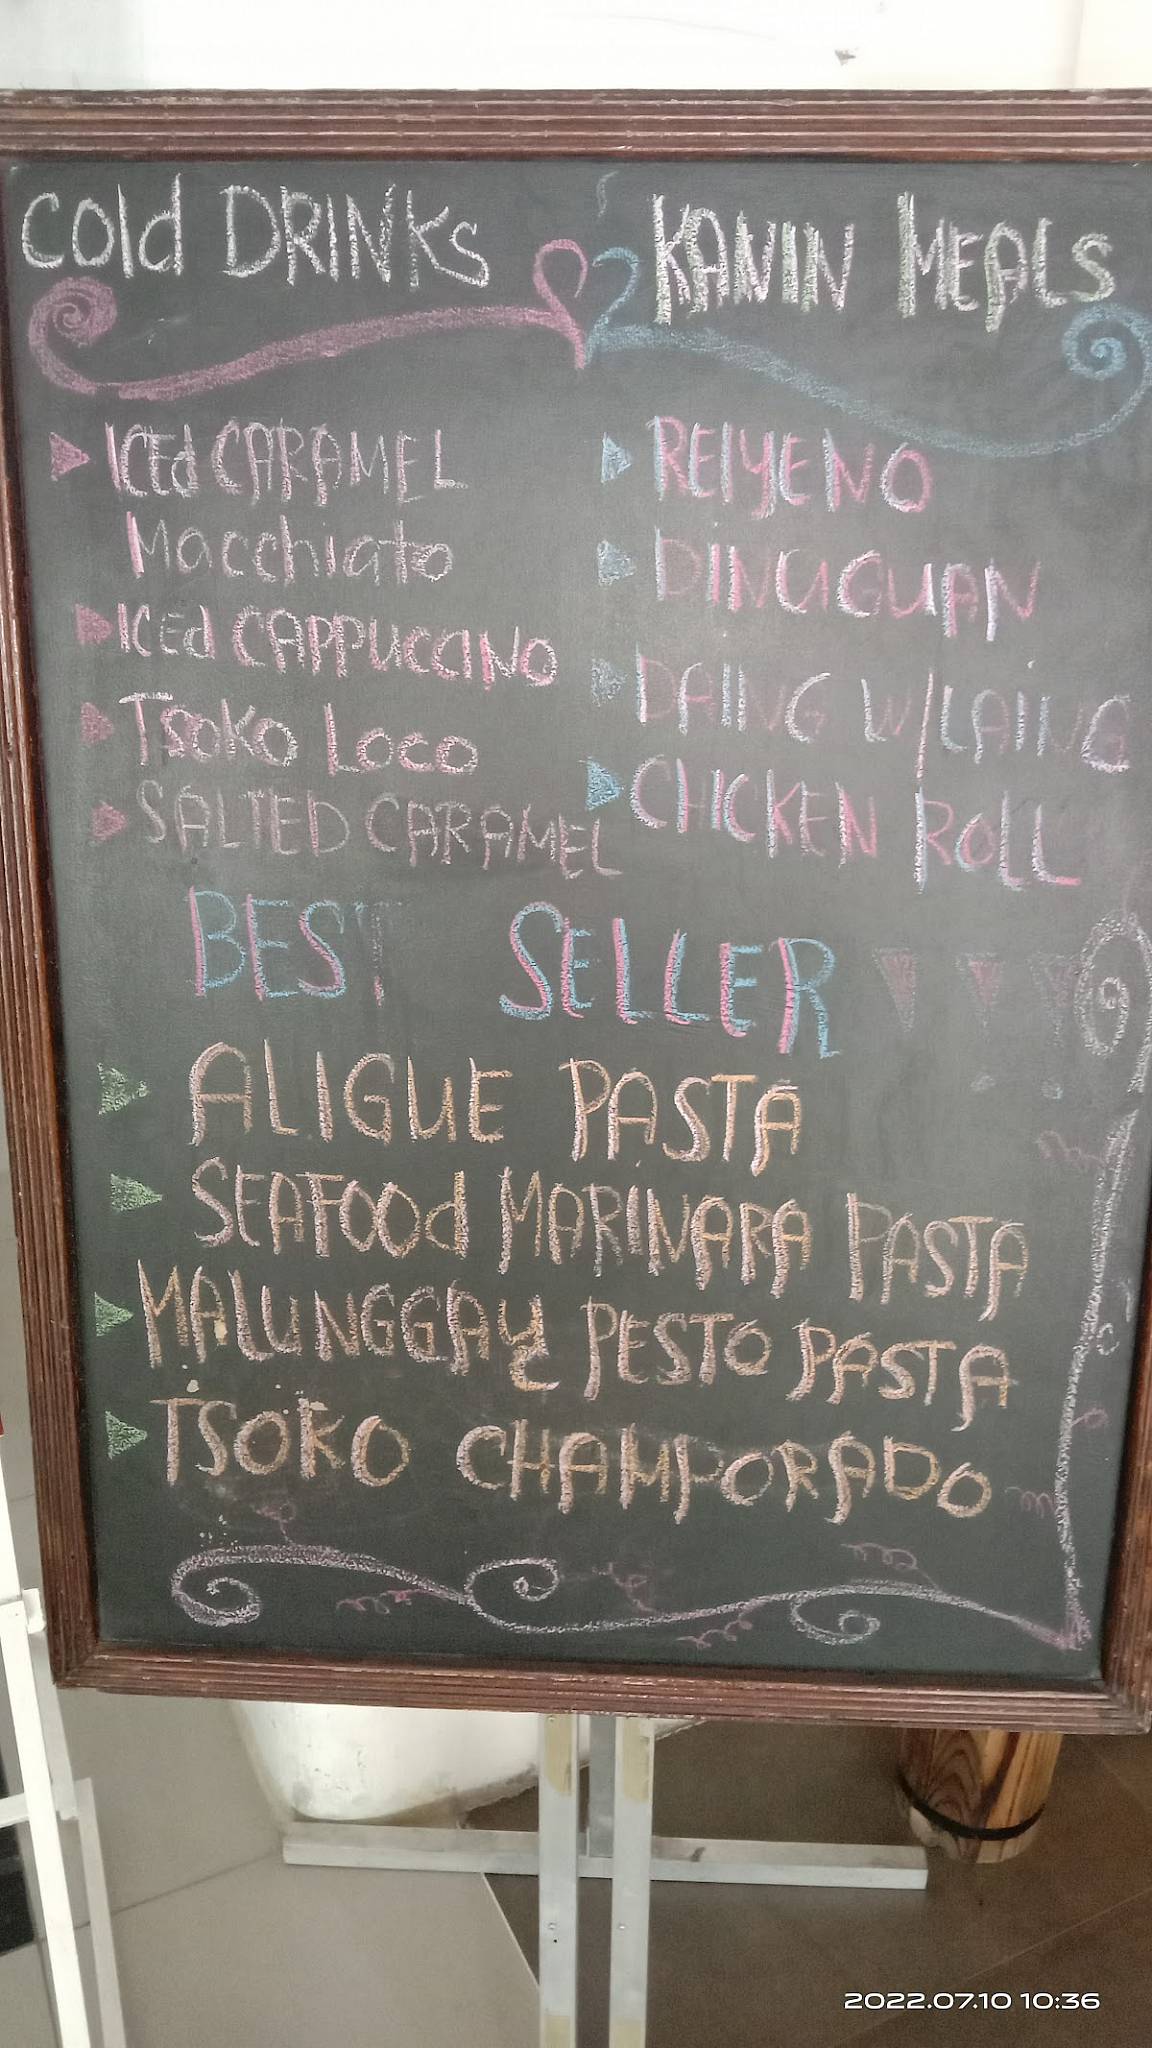 Cold DRINKs
KANIN MEALS
ICEd CARAMEL
Macchiato
ICEd CAPPUCCINO
TSOKO Loco
SALTED CARAMEL
RElyENO
DINUGUAN
DAING W/LAiNG
CHICKEN ROLL
BEST SELLER !!!
ALIGUE PASTA
SEAFOOd MARINARA PASTA
MALUNGGAy PESTO PASTA
TSOKO CHAMPORADO
2022.07.10 10:36